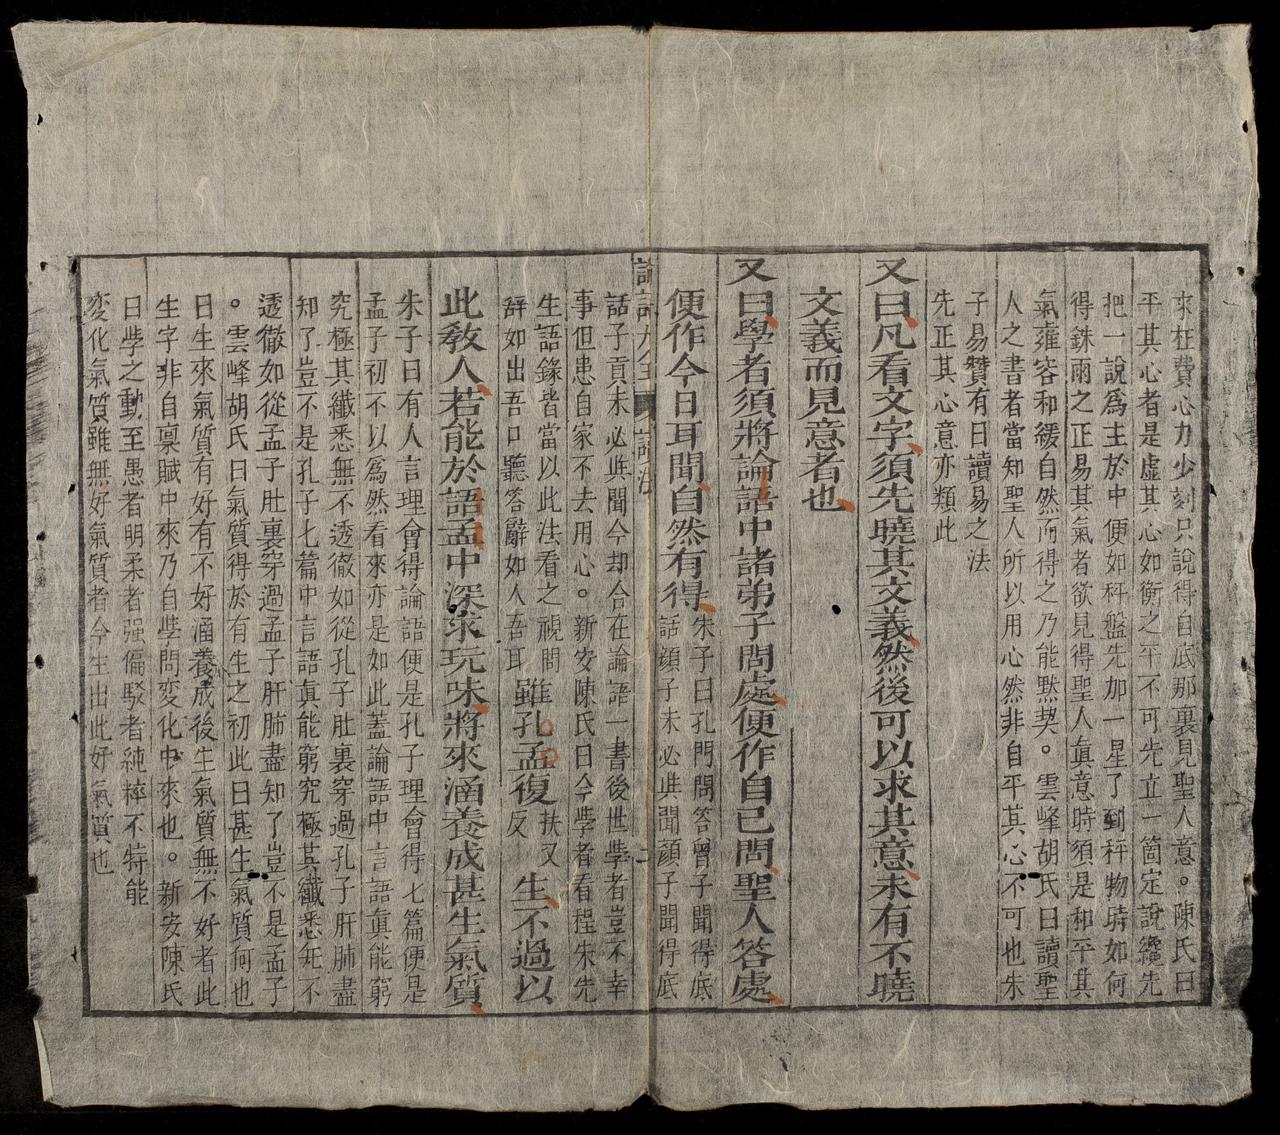 來枉費心力少刻只說得自底那裏見聖人意。陳氏曰
平其心者是虛其心如衡之平不可先立一箇定說纔先
把一說爲主於中便如秤盤先加一星了到秤物時如何
得銖兩之正易其氣者欲見得聖人眞意時須是和平其
氣雍容和緩自然而得之乃能默契。雲峰胡氏曰讀聖
人之書者當知聖人所以用心然非自平其心不可也朱
子易贊有曰讀易之法
先正其心意亦類此
又曰凡看文字須先曉其文義然後可以求其意未有不曉
文義而見意者也
又曰學者須將論語中諸弟子問處便作自己問聖人答處
便作今日耳聞自然有得朱子曰孔門問答曾子聞得底
話顔子未必與聞顔子聞得底
論語大全 讀法 二
話子貢未必與聞今却合在論語一書後世學者豈不幸
事但患自家不去用心。新安陳氏曰今學者看程朱先
生語錄皆當以此法看之視問
辭如出吾口聽答辭如人吾耳
雖孔孟復扶又
反生不過以
此敎人若能於語孟中深求玩味將來涵養成甚生氣質
朱子曰有人言理會得論語便是孔子理會得七篇便是
孟子初不以爲然看來亦是如此蓋論語中言語眞能窮
究極其纖悉無不透徹如從孔子肚裏穿過孔子肝肺盡
知了豈不是孔子七篇中言語眞能窮究極其纖悉無不
透徹如從孟子肚裏穿過孟子肝肺盡知了豈不是孟子
。雲峰胡氏曰氣質得於有生之初此曰甚生氣質何也
曰生來氣質有好有不好涵養成後生氣質無不好者此
生字非自稟賦中來乃自學問変化中來也。新安陳氏
曰學之動至愚者明柔者强偏駁者純粹不特能
変化氣質雖無好氣質者今生出此好氣質也